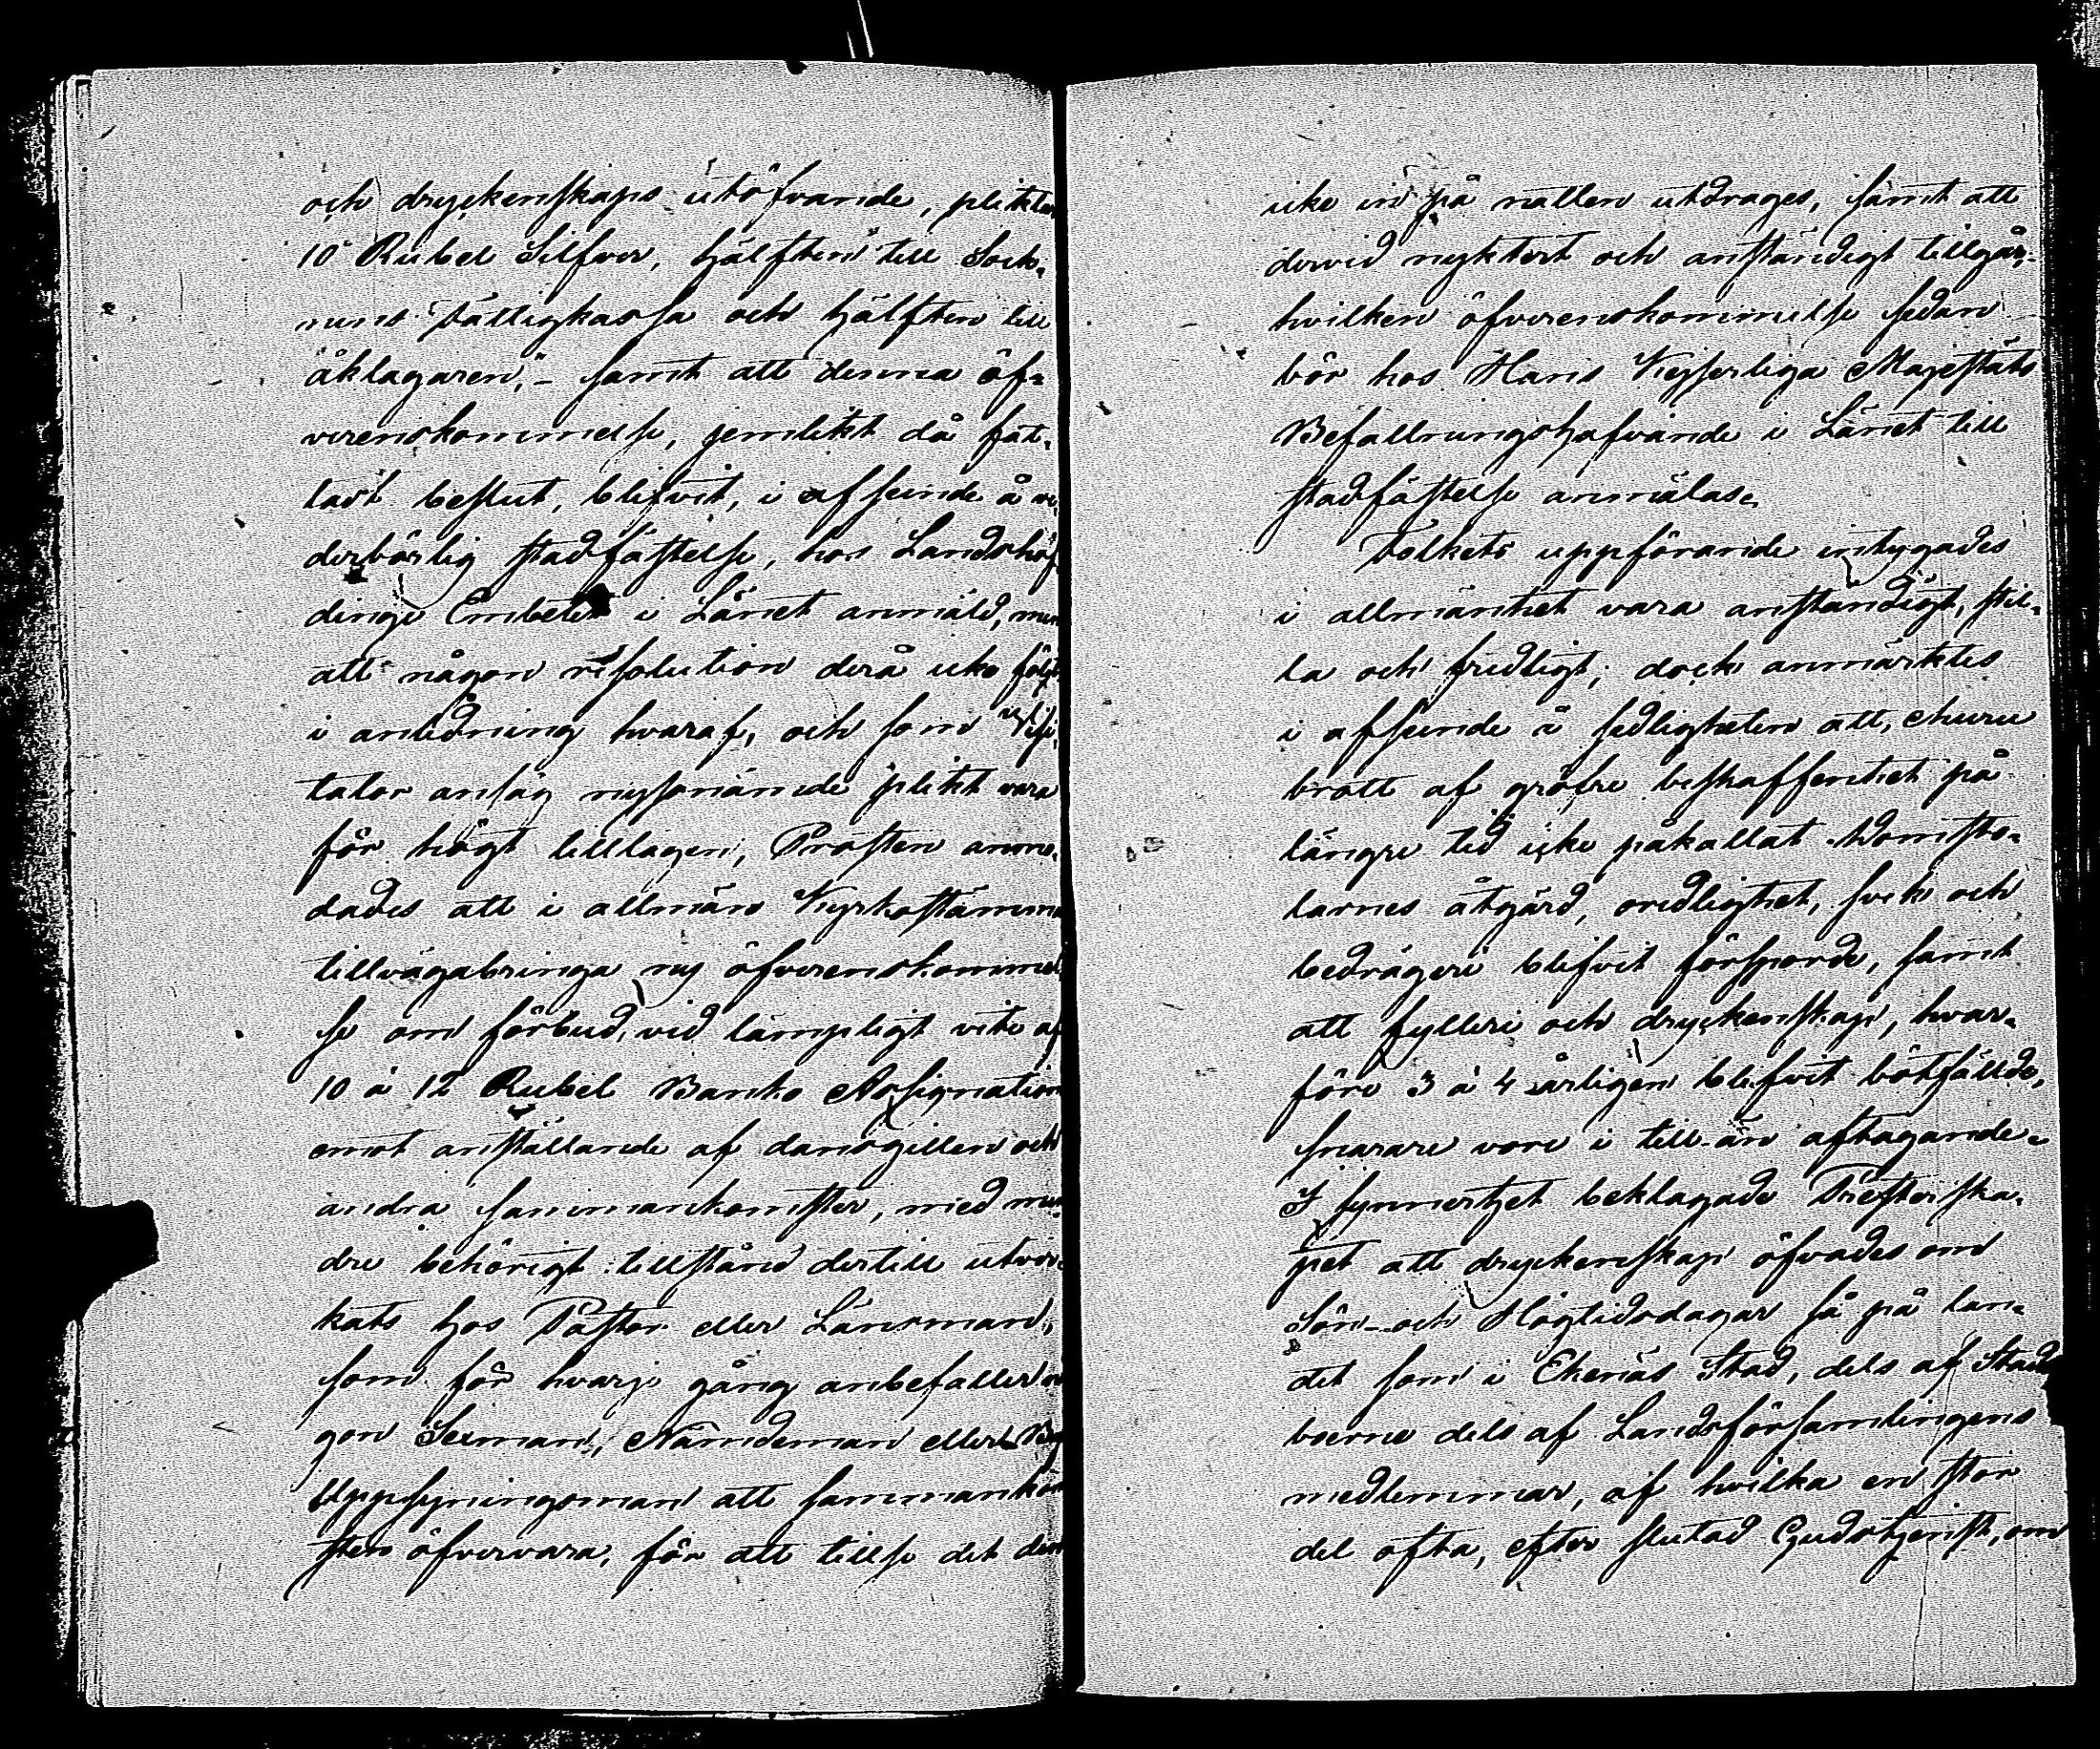 och dryckenskaps utöfvande, plikta
10 Rubel Silfver, hälften till Sock-
nens Fattigkassa och hälften till
åklagaren, - samt att denna öf-
verenskommelse, jemlikt då fat-
tadt beslut, blifvit, i afseende å ve-
derbörlig stadfästelse, hos Landshöf-
dinge Embetet i Länet anmäld, men
att någon resolution derå icke följt
i anledning hvaraf, och som Visi-
tator ansåg nyssnämde plikt vara
för högt tilltagen, Prosten anmo-
dades att i allmän Kyrkostämma
tillvägabringa ny öfverenskommel-
se om förbud, vid lämpligt vite af
10 à 12 Rubel Banko Assignation
emot anställande af dansgillen och
andra sammankomster, med min-
dre behörigt tillstånd dertill utver-
kats hos Pastor eller Länsman,
som för hvarje gång anbefaller nå-
gon Sexman, Nämdeman eller By
Uppsyningsman att sammankom-
sten öfvervara, för att tillse det den
icke in på natten utdrages, samt att
dervid nyktert och anständigt tillgår,
hvilken öfverenskommelse sedan
bör hos Hans Kejserliga Majestäts
Befallningshafvande i Länet till
stadfästelse anmälas.
Folkets uppförande intygades
i allmänhet vara anständigt, stil-
la och fredligt; dock anmärktes
i afseende å sedligheten att, ehuru
brott af gröfre beskaffenhet på
längre tid icke påkallat domsto-
larnes åtgärd, oredlighet, svek och
bedrägeri blifvit försporde, samt
att fylleri och dryckenskap, hvar-
före 3 à 4 årligen blifvit bötfällde,
snarare vore i till- än aftagande.
I synnerhet beklagade Presterska-
pet att dryckenskap öfvades om
Sön- och Högtidsdagar så på lan-
det som i Ekenäs Stad, dels af Stads
boerne dels af Landsförsamlingens
medlemmar, af hvilka en stor
del ofta, efter slutad Gudstjenst, om